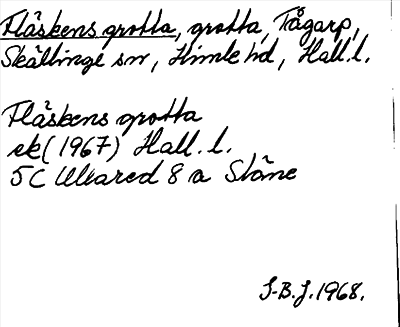 Fläskens grotta, grotta, Tågarp,
Skällinge sn, Himle hd, Hall. l.
Fläskens grotta
ek (1967) Hall. l.
5C Ullared 8 a Stöne
S-B.J. 1968.